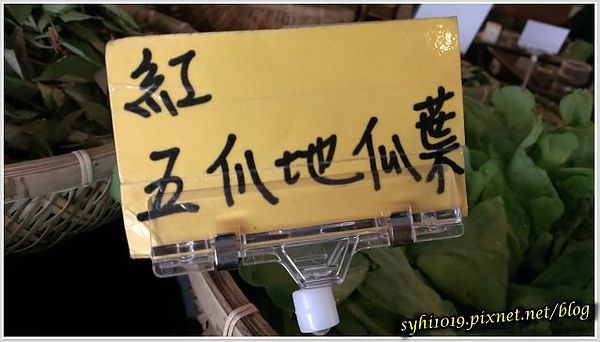 紅
五爪地瓜葉
syhi1019.pixnet.net/blog